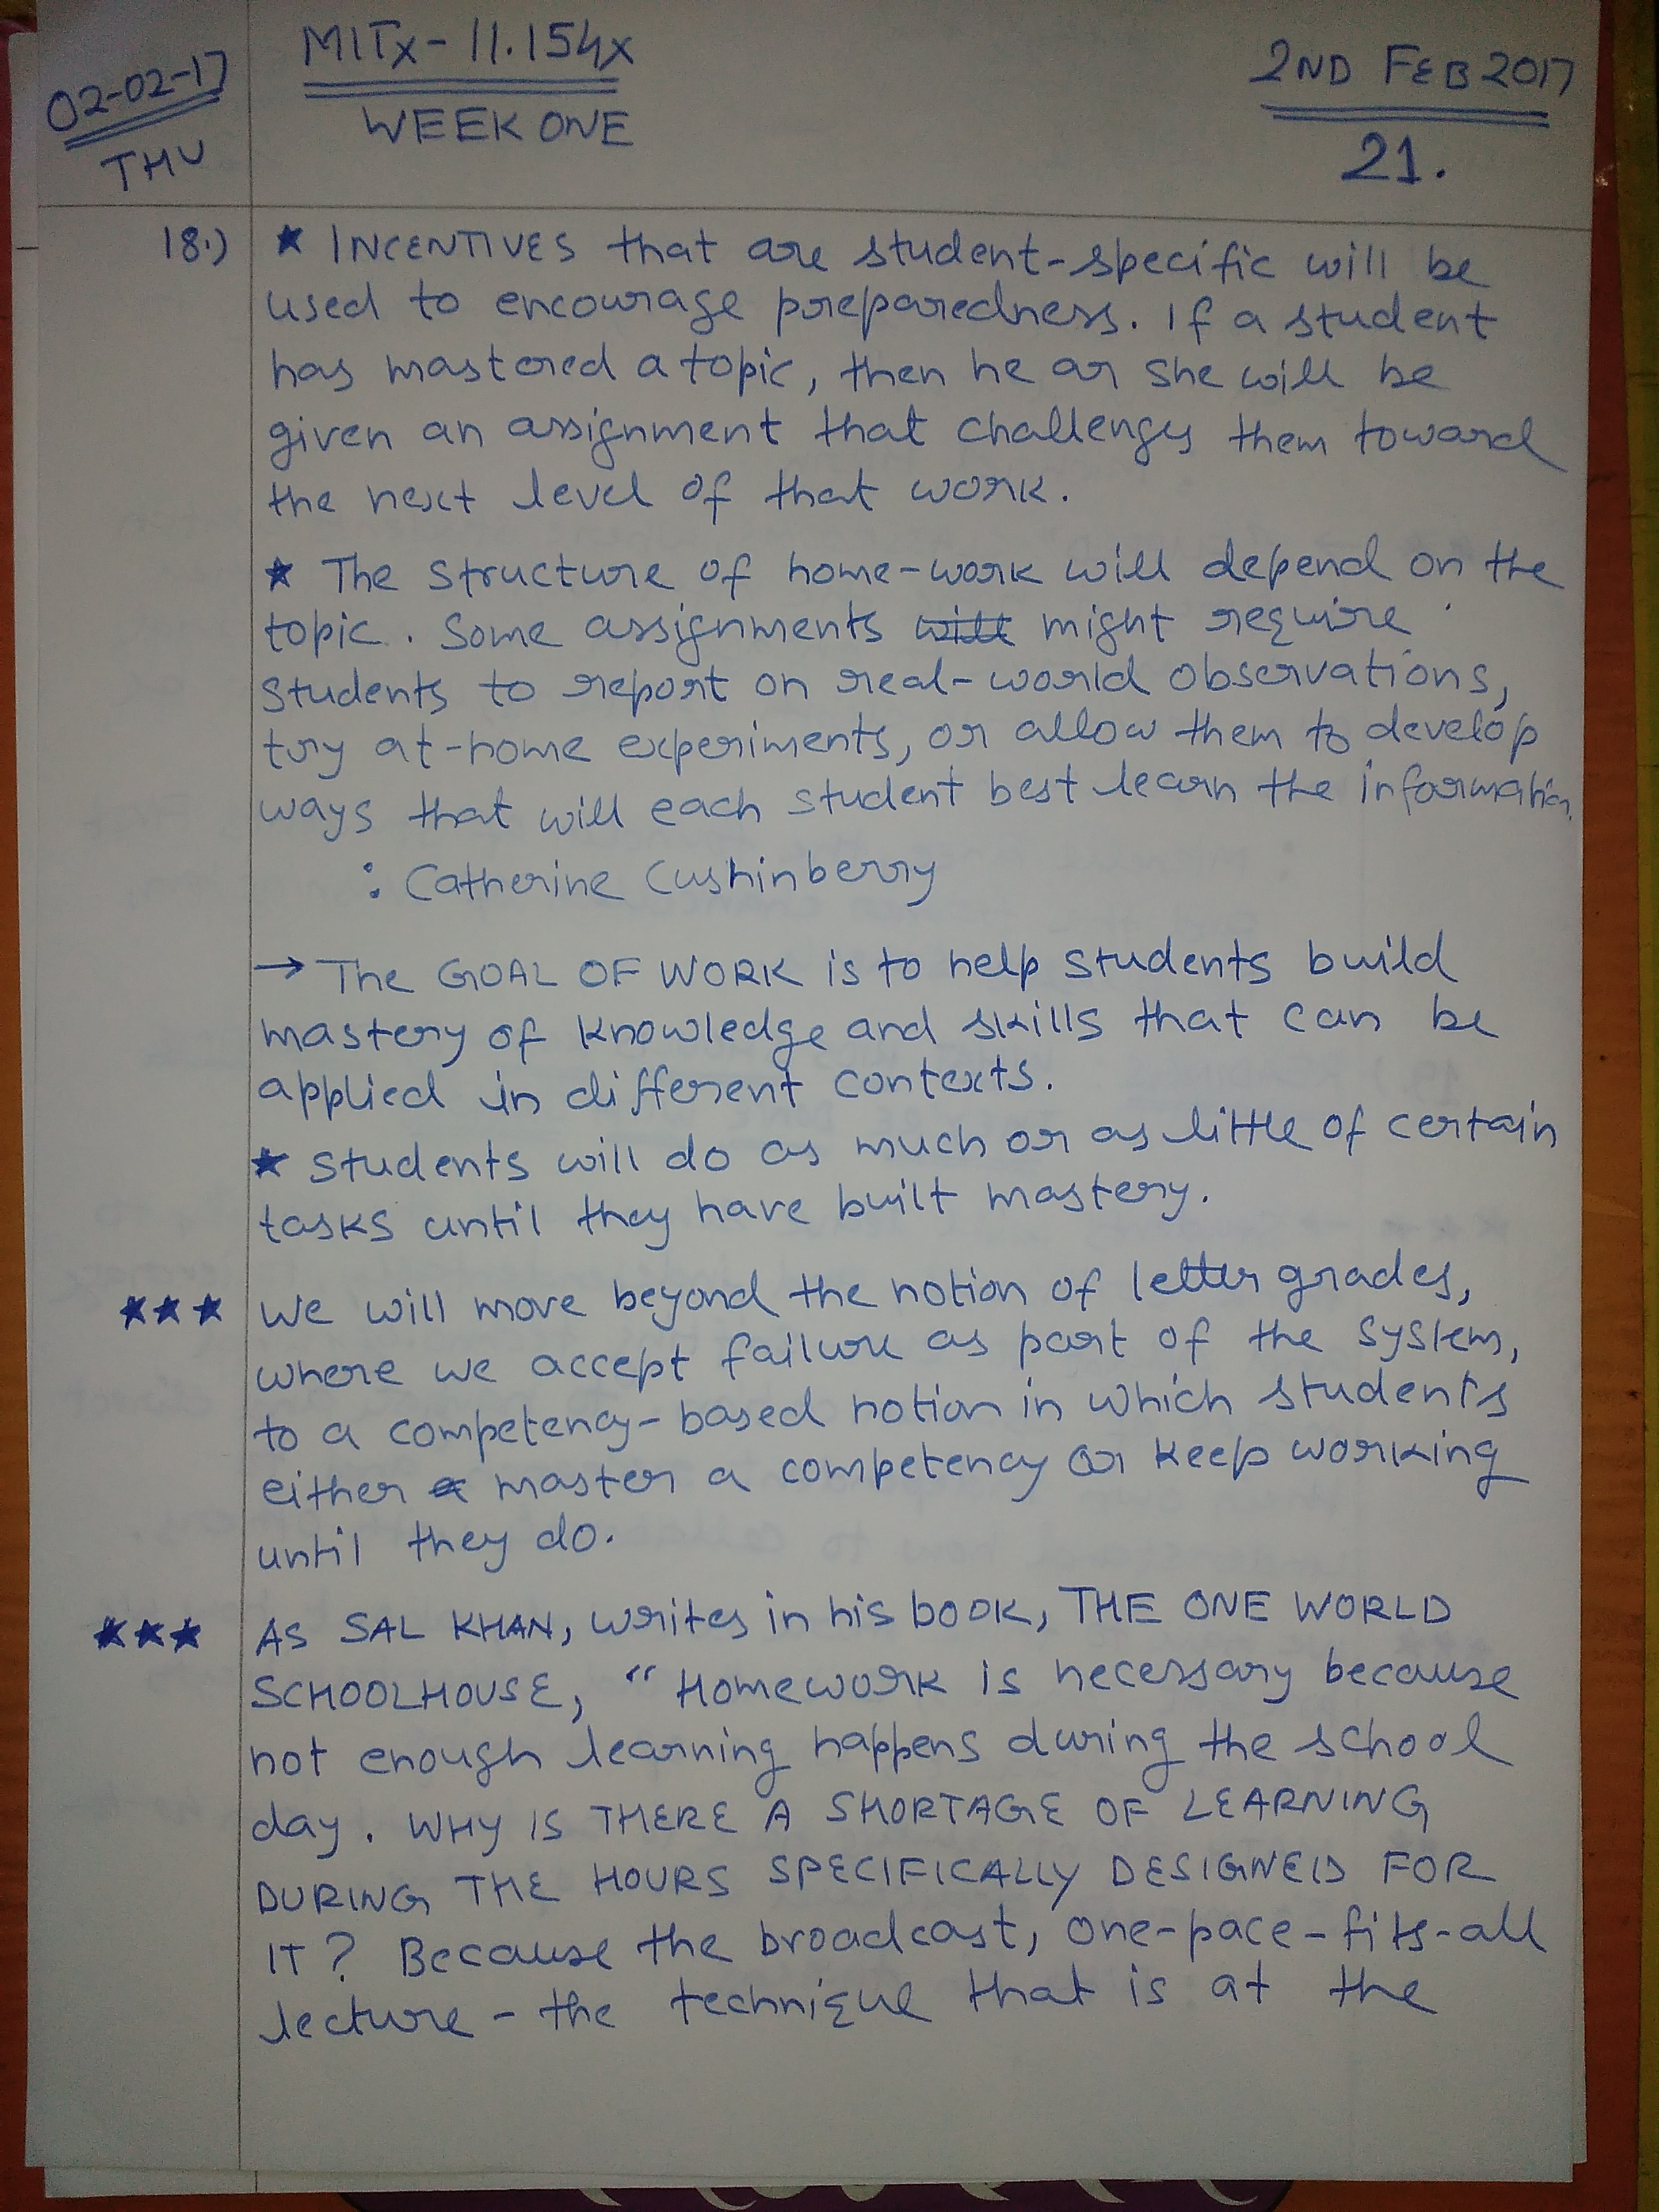 02-02-17
THU
MITx-11.154x
WEEK ONE
2ND FEB 2017
21.
18.) ★ INCENTIVES that are student-specific will be
used to encourage preparedness. If a student
has mastered a topic, then he or she will be
given an assignment that challenges them toward
the next level of that work.
★ The structure of home-work will depend on the
topic. Some assignments will might require
students to report on real-world observations,
try at-home experiments, or allow them to develop
ways that will each student best learn the information.
: Catherine Cushinberry
→ The GOAL OF WORK is to help students build
mastery of knowledge and skills that can be
applied in different contexts.
★ Students will do as much or as little of certain
tasks until they have built mastery.
★★★ We will move beyond the notion of letter grades,
where we accept failure as part of the system,
to a competency-based notion in which students
either a master a competency or keep working
until they do.
★★★ As SAL KHAN, writes in his book, THE ONE WORLD
SCHOOLHOUSE, "Homework is necessary because
not enough learning happens during the school
day. WHY IS THERE A SHORTAGE OF LEARNING
DURING THE HOURS SPECIFICALLY DESIGNED FOR
IT? Because the broadcast, one-pace-fits-all
lecture - the technique that is at the